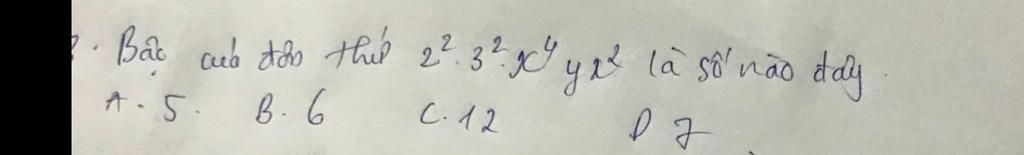 ? . Bậc của đơn thức 2². 3². x⁴ y x² là số nào đây .
A . 5 . B . 6 C . 12 D 7